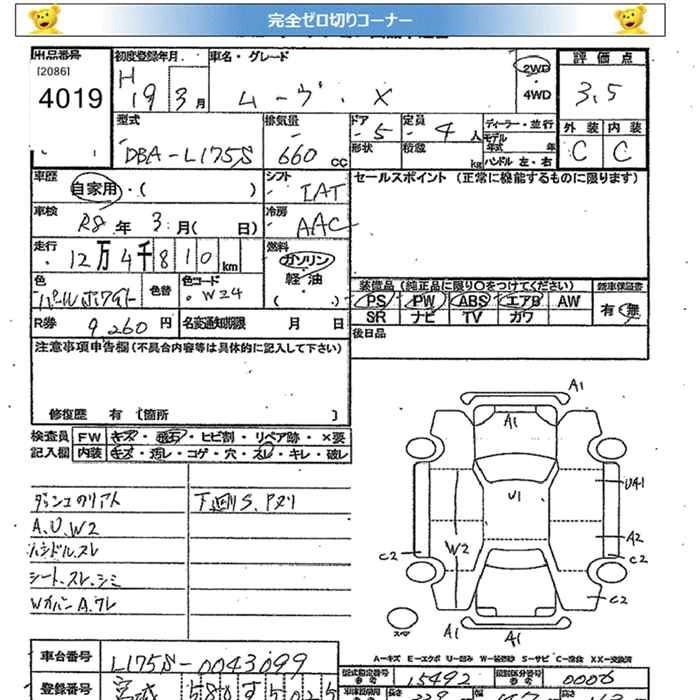 完全ゼロ切りコーナー
出品番号 初度登録年月 車名・グレード 評価点
[2086]
4019
H 19 3月
ムーヴ・X
2WD
・4WD
3.5
型式 排気量 ドア 定員 ディーラー・並行 外装 内装
DBA-L175S 660 cc
・5 ・4人
モデル年式 年
形状 積載 kg ハンドル 左・右
C C
車歴 シフト セールスポイント (正常に機能するものに限ります)
自家用・( )
IAT
車検 冷房
R8年 3月( 日)
AAC
走行 燃料
12万4千810km
ガソリン
軽・油
( )
色 色替 色コード
パールホワイト ・W24
装備品 (純正品に限り○をつけてください) 新車保証書
PS PW ABS エアB AW 有・無
SR ナビ TV カワ
R券 9,260円 名変通知期限 月 日
後日品
注意事項申告欄 (不具合内容等は具体的に記入して下さい)
修復歴 有 [箇所 ]
検査員 FW キズ・飛石・ヒビ割・リペア跡・×要
記入欄 内装 キズ・汚レ・コゲ・穴・スレ・キレ・破レ
下廻りS、Pヌリ
A、U、W2
ハンドル、スレ
シート、スレ、シミ
A1
A1
U1
U41
A2
W2
C2
C2
C2
スペア
A1
A1
A-キズ E-エクボ U-凹み W-補修跡 S-サビ C-腐食 XX-交換済
車台番号 L175S-0043099
型式指定番号 参考 15492 類別区分番号 参考 0006
登録番号 宮城 580 す 5025